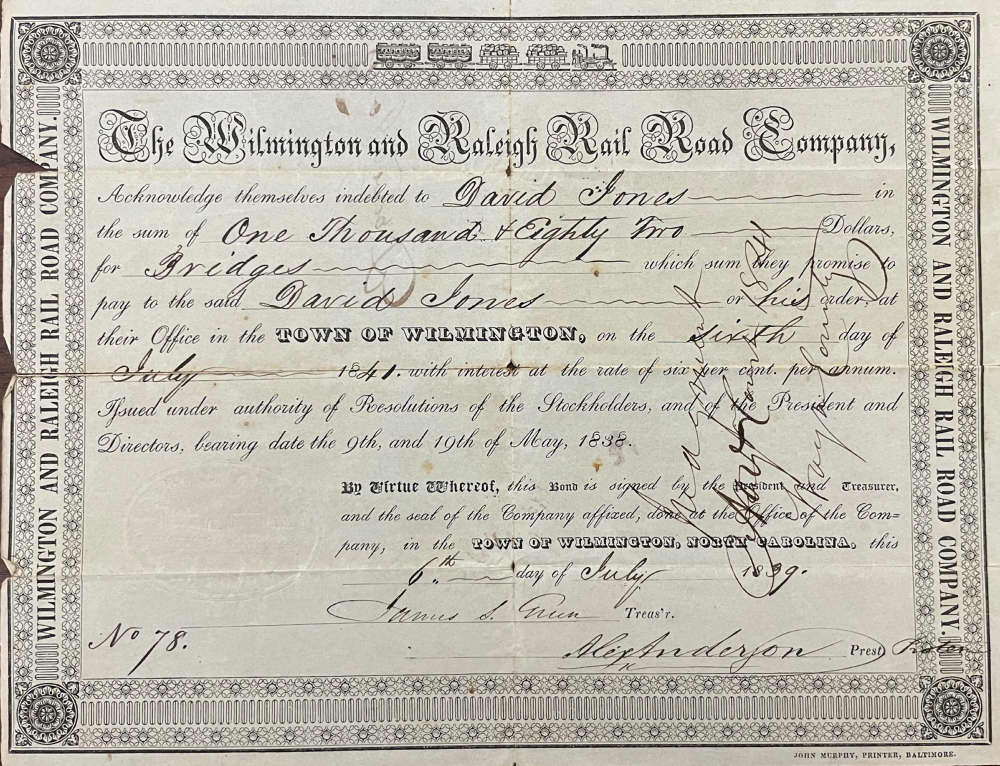 The Wilmington and Raleigh Rail Road Company,
Acknowledge themselves indebted to David Jones in
the sum of One Thousand & Eighty Two Dollars,
for Bridges which sum they promise to
pay to the said David Jones or his order, at
their Office in the TOWN OF WILMINGTON, on the sixth day of
July 1841. with interest at the rate of six per cent. per annum.
Issued under authority of Resolutions of the Stockholders, and of the President and
Directors, bearing date the 9th, and 19th of May, 1838.
By Virtue Whereof, this Bond is signed by the President and Treasurer,
and the seal of the Company affixed, done at the Office of the Com-
pany, in the TOWN OF WILMINGTON, NORTH CAROLINA, this
6th day of July 1839.
James S. Green Treas'r.
No 78.
Alex Anderson Prest
WILMINGTON AND RALEIGH RAIL ROAD COMPANY.
WILMINGTON AND RALEIGH RAIL ROAD COMPANY.
1841
Wayne County
JOHN MURPHY, PRINTER, BALTIMORE.